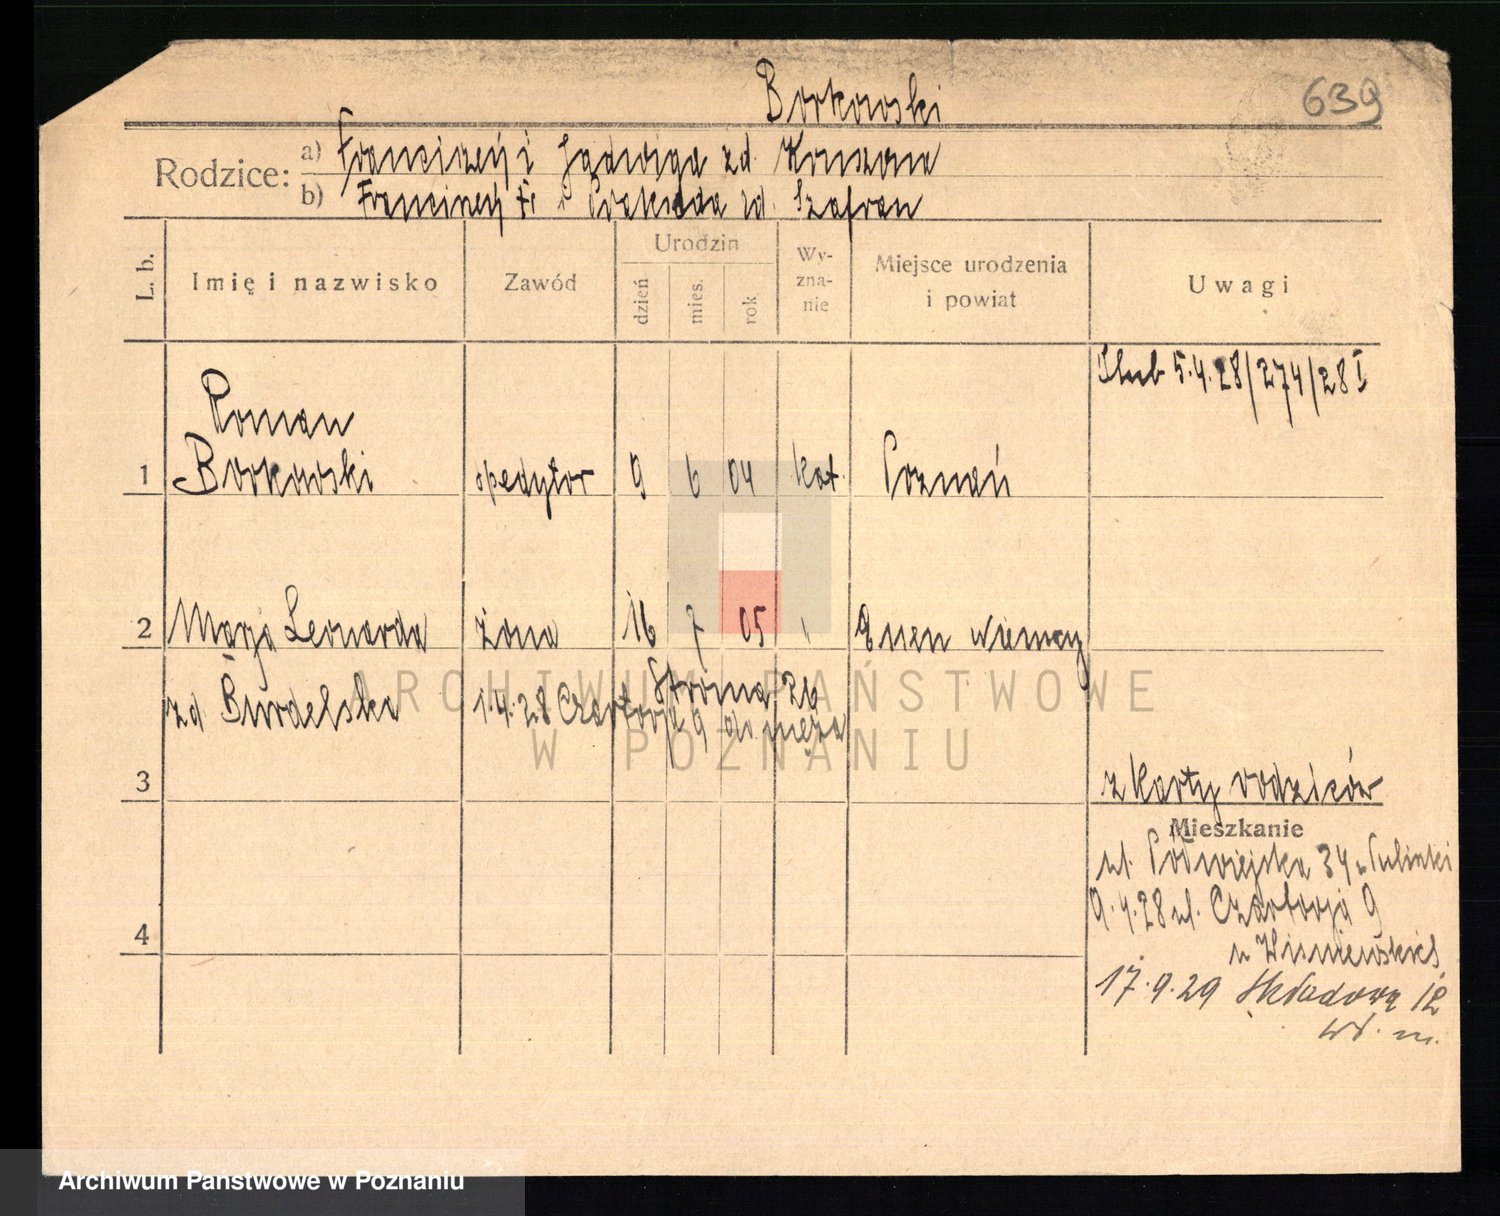 Borkowski
639
Rodzice:
a) Franciszek i Jadwiga zd.
b) i zd. Szafran
L. b.
Imię i nazwisko
Zawód
Urodzin
dzień
mies.
rok
Wy-
zna-
nie
Miejsce urodzenia
i powiat
Uwagi
Ślub 5.4.28/274/28 I
Roman
1 Borkowski spedytor 9 6 04 kat. Poznań
2 Marja Leonarda żona 16 7 05
zd Burdelska
Stroma 26
1.4.28 Czartorja 9 do męża
ARCHIWUM PAŃSTWOWE
W POZNANIU
3
z karty rodziców
Mieszkanie
ul. Półwiejska 34
4
9.4.28 ul. Czartorja 9
u Wiśniewskich
17.9.29 Składowa 12
wł. m.
Archiwum Państwowe w Poznaniu